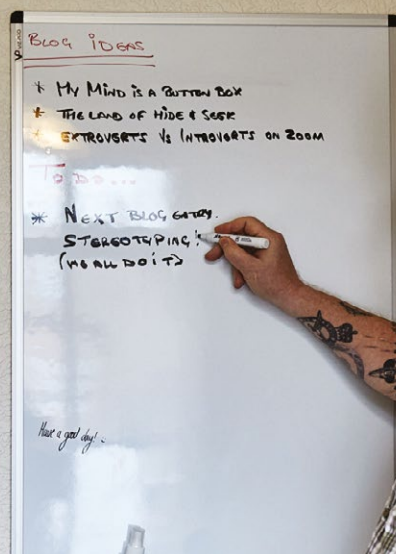 BLOG IDEAS
* MY MIND IS A BUTTON BOX
* THE LAND OF HIDE & SEEK
* EXTROVERTS VS INTROVERTS ON ZOOM
TO DO...
* NEXT BLOG ENTRY.
STEREOTYPING!
(WE ALL DO IT)
Have a good day!